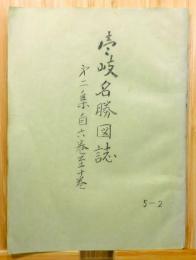 壱岐名勝図誌
第二集自六巻至十巻
5-2